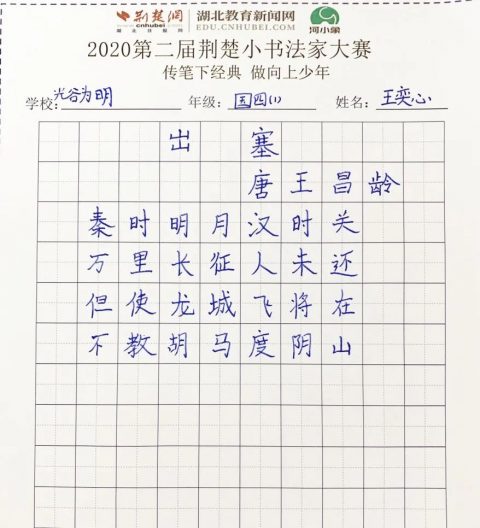 荆楚网
www.cnhubei.com
湖北日报网
湖北教育新闻网
EDU.CNHUBEI.COM
河小象
2020第二届荆楚小书法家大赛
传笔下经典 做向上少年
学校:光谷为明 年级:四(1) 姓名:王奕心
出塞
唐王昌龄
秦时明月汉时关
万里长征人未还
但使龙城飞将在
不教胡马度阴山